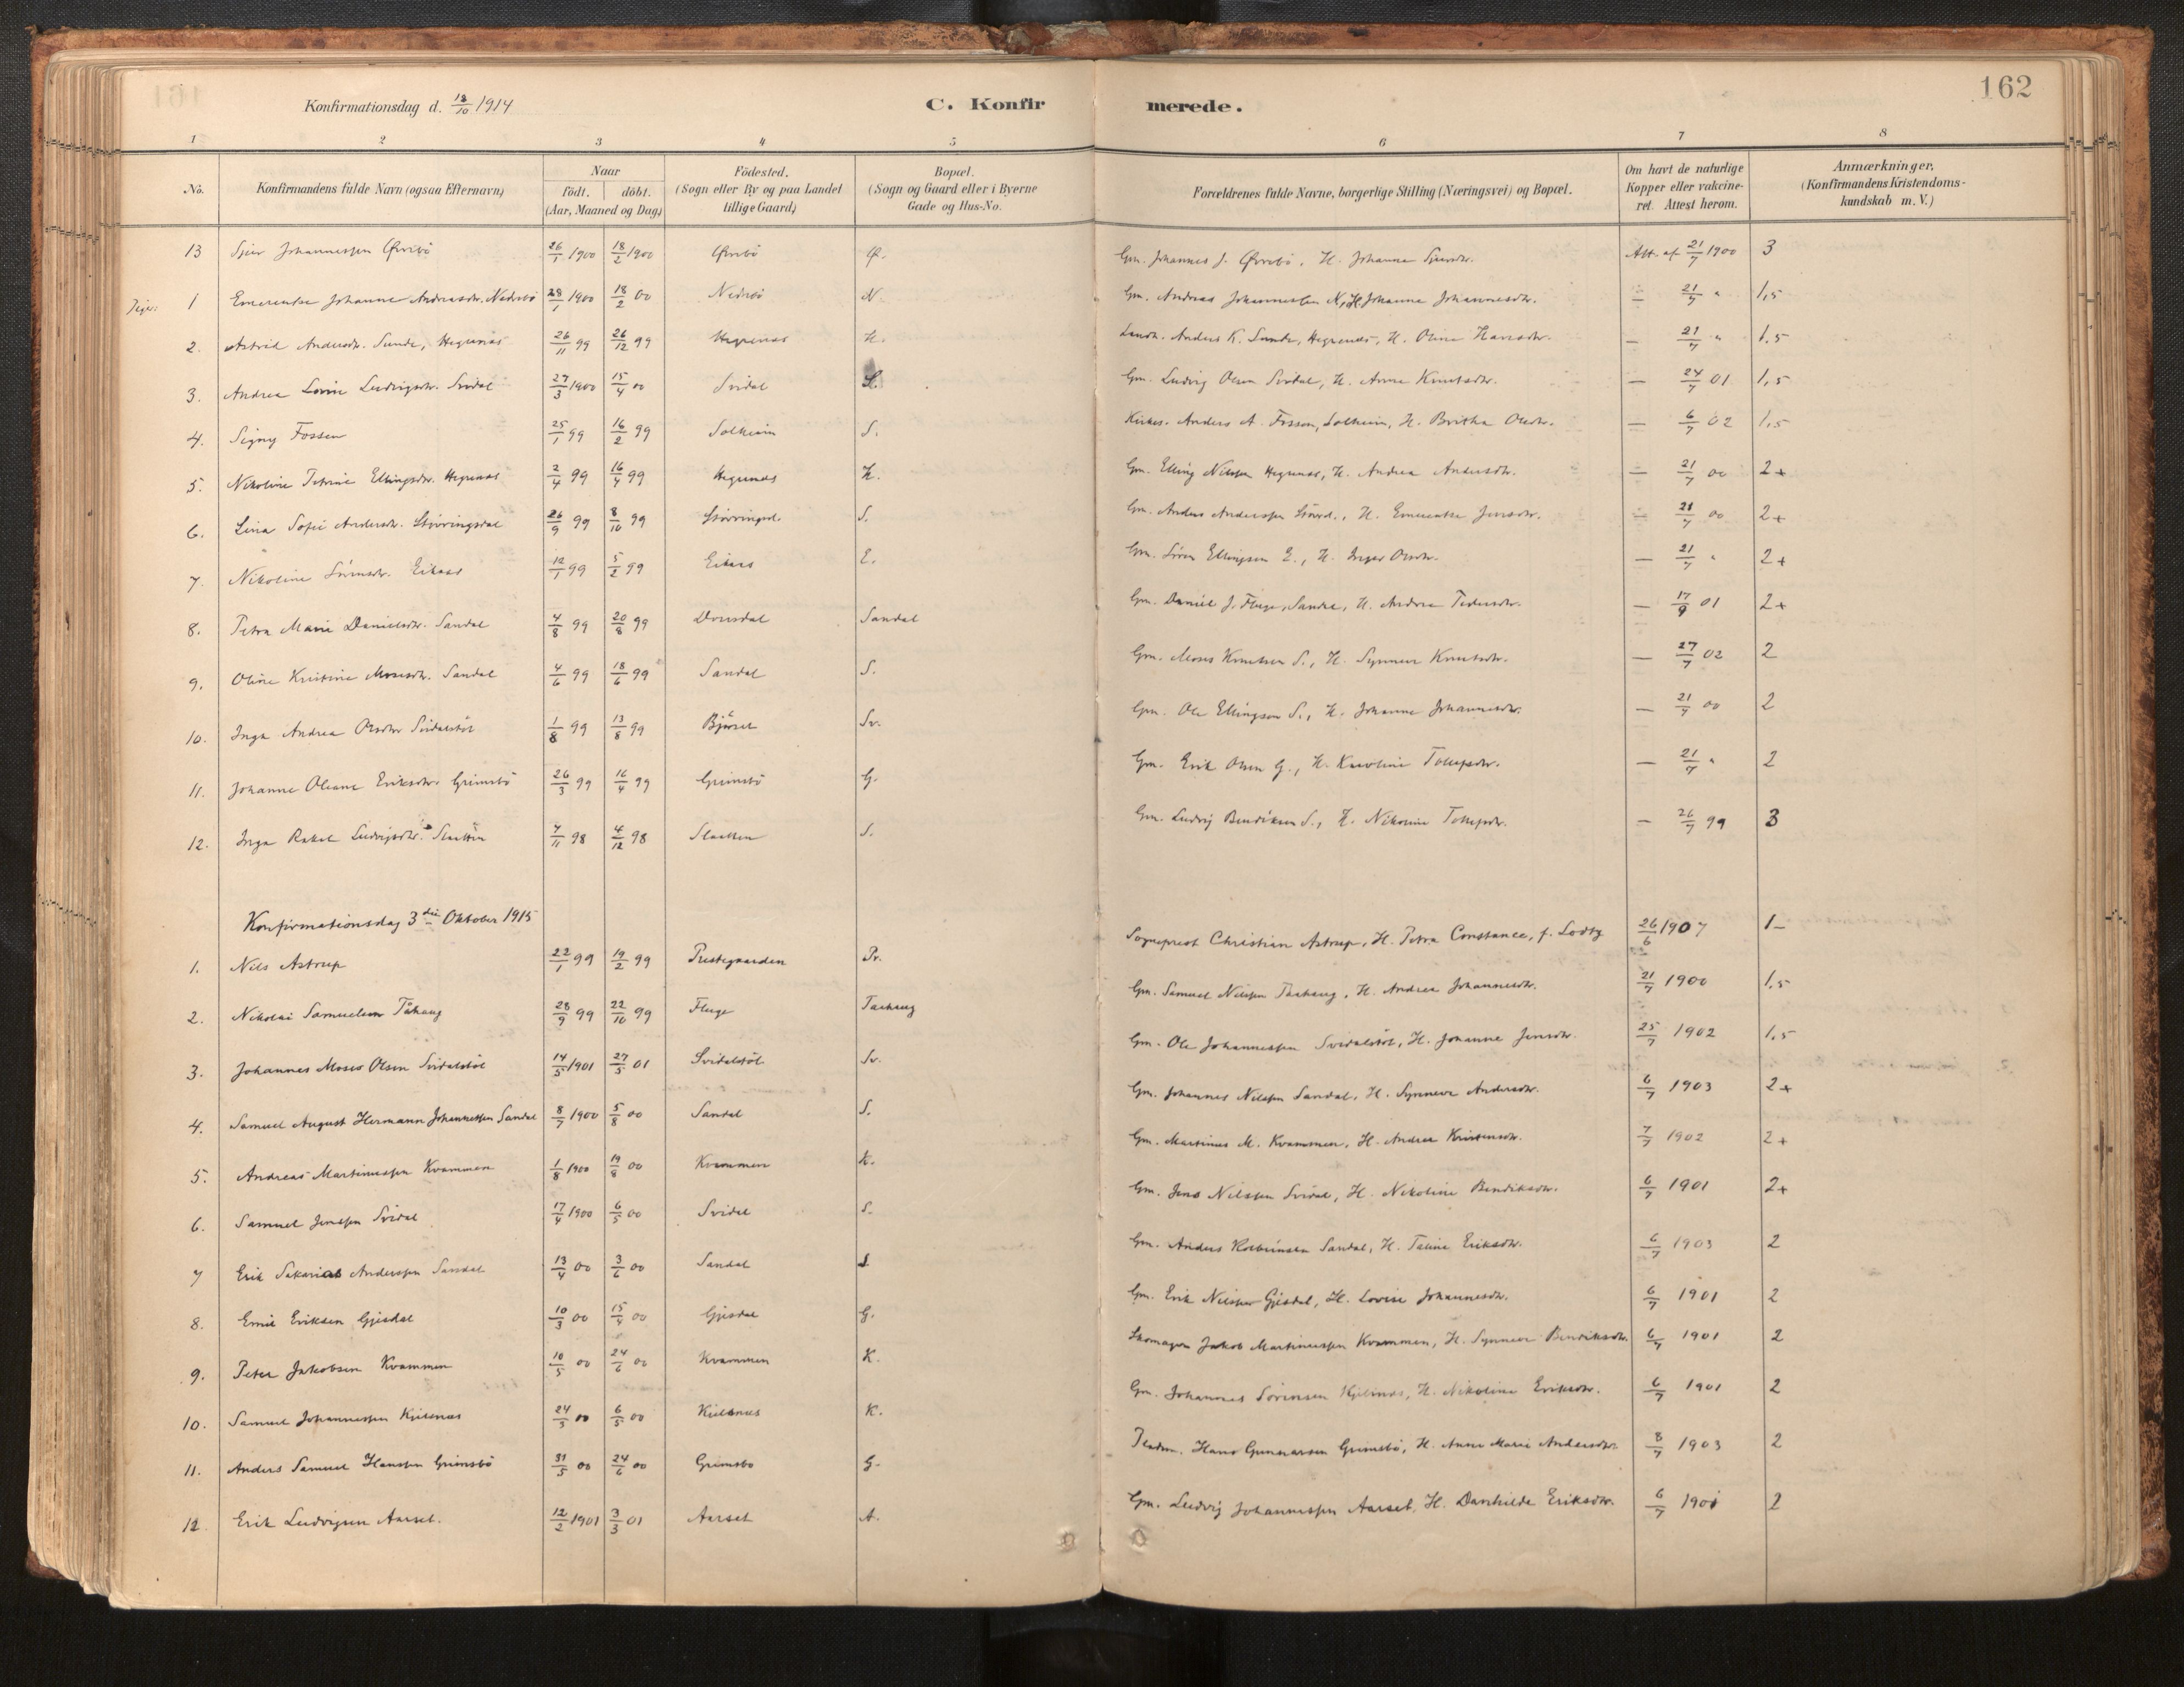 162
Konfirmationsdag d. 18/10 1914 C. Konfirmerede.
1 2 3 4 5 6 7 8
No. Konfirmandens fulde Navn (ogsaa Efternavn) Naar födt. döbt. (Aar, Maaned og Dag) Födested. (Sogn eller By og paa Landet tillige Gaard) Bopæl. (Sogn og Gaard eller i Byerne Gade og Hus-No. Forældrenes fulde Navne, borgerlige Stilling (Næringsvei) og Bopæl. Om havt de naturlige Kopper eller vakcineret. Attest herom. Anmærkninger, (Konfirmandens Kristendomskundskab m. V.)
13 Sjur Johannessen Øvrebö 26/1 1900 18/2 1900 Øvrebö Ø. Gm. Johannes J. Øvrebö, H. Johanne Sjursdtr. Att. af 21/7 1900 3
Piger: 1 Emerentse Johanne Andreasdtr. Nedrebö 28/1 1900 18/2 00 Nedrebö N. Gm. Andreas Johannessen N., H. Johanne Johannesdtr. — 21/7 " 1,5
2. Astrid Andersdtr. Sunde, Hegrenæs 26/11 99 26/12 99 Hegrenæs H. Anders K. Sunde, Hegrenæs, H. Oline Hansdtr. — 21/7 " 1,5
3. Andrea Lovise Ludvigsdtr. Svidal 27/3 1900 15/4 00 Svidal S. Gm. Ludvig Olsen Svidal, H. Anne Knutsdtr. — 24/7 01 1,5
4. Signy Fossen 25/1 99 16/2 99 Solheim S. Kirkes. Anders A. Fossen, Solheim, H. Britha Olsdtr. — 6/7 02 1,5
5. Nikoline Petrine Ellingsdtr. Hegrenæs 2/4 99 16/4 99 Hegrenæs H. Gm. Elling Nilssen Hegrenæs, H. Andrea Andersdtr. — 21/7 00 2+
6. Lina Sofie Andersdtr. Støvringsdal 26/9 99 8/10 99 Støvringsd. S. Gm. Anders Anderssen Støvrd., H. Emerentse Jensdtr. — 21/7 00 2+
7. Nikoline Sörensdtr. Eikaas 12/1 99 5/2 99 Eikaas E. Gm. Sören Ellingsen E., H. Inger Olsdtr. — 21/7 " 2+
8. Petra Marie Danielsdtr. Sandal 4/8 99 20/8 99 Dvergsdal Sandal Gm. Daniel J. Fluge, Sandal, H. Andrea Pedersdtr. — 17/9 01 2+
9. Oline Kristine Mosesdtr. Sandal 4/6 99 18/6 99 Sandal S. Gm. Moses Knutsen S., H. Synneve Knutsdtr. — 27/7 02 2
10. Inga Andrea Olsdtr Svidalstöl 1/8 99 13/8 99 Björset Sv. Gm. Ole Ellingsen S., H. Johanne Johannesdtr. — 21/7 00 2
11. Johanne Oleane Eriksdtr. Grimsbö 26/3 99 16/4 99 Grimsbö G. Gm. Erik Olsen G., H. Karoline Tollefsdtr. — 21/7 " 2
12. Inga Rakel Ludvigsdtr. Slaatten 7/11 98 4/12 98 Slaatten S. Gm. Ludvig Bendiksen S., H. Nikoline Tollefsdtr. — 26/7 99 3
Konfirmationsdag 3die Oktober 1915
1. Nils Astrup 22/1 99 19/2 99 Prestegaarden Pr. Sogneprest Christian Astrup, H. Petra Constance, f. Lodtz 26/6 1907 1-
2. Nikolai Samuelsen Tåhaug 28/9 99 22/10 99 Fluge Taahaug Gm. Samuel Nilssen Taahaug, H. Andrea Johannesdtr. 21/7 1900 1,5
3. Johannes Moses Olsen Svidalstöl 14/5 1901 27/5 01 Svidalstöl Sv. Gm. Ole Johannessen Svidalstöl, H. Johanne Jensdtr. 25/7 1902 1,5
4. Samuel August Hermann Johannessen Sandal 8/7 1900 5/8 00 Sandal S. Gm. Johannes Nilssen Sandal, H. Synneve Andersdtr. 6/7 1903 2+
5. Andreas Martinussen Kvammen 1/8 1900 19/8 00 Kvammen K. Gm. Martinus M. Kvammen, H. Andrea Kristensdtr. 7/7 1902 2+
6. Samuel Jenssen Svidal 17/4 1900 6/5 00 Svidal S. Gm. Jens Nilssen Svidal, H. Nikoline Bendiksdtr. 6/7 1901 2+
7 Erik Sakarias Anderssen Sandal 13/4 00 3/6 00 Sandal S Gm. Anders Kolbeinsen Sandal, H. Taline Eriksdtr. 6/7 1903 2
8. Emil Eriksen Gjesdal 10/3 00 15/4 00 Gjesdal G. Gm. Erik Nilssen Gjesdal, H. Lovise Johannesdtr. 6/7 1901 2
9. Peter Jakobsen Kvammen 10/5 00 24/6 00 Kvammen K. Skomager Jakob Martinussen Kvammen, H. Synneve Bendiksdtr. 6/7 1901 2
10. Samuel Johannessen Kjelsnæs 24/3 00 6/5 00 Kjelsnæs K. Gm. Johannes Sörensen Kjelsnæs, H. Nikoline Eriksdtr. 6/7 1901 2
11. Anders Samuel Hanssen Grimsbö 31/5 00 24/6 00 Grimsbø G. Pladsm. Hans Gunnarsen Grimsbö, H. Anne Marie Andersdtr. 8/7 1903 2
12. Erik Ludvigsen Aarset. 12/2 1901 3/3 01 Aarset A. Gm. Ludvig Johannessen Aarset, H. Darthilde Eriksdtr. 6/7 1901 2